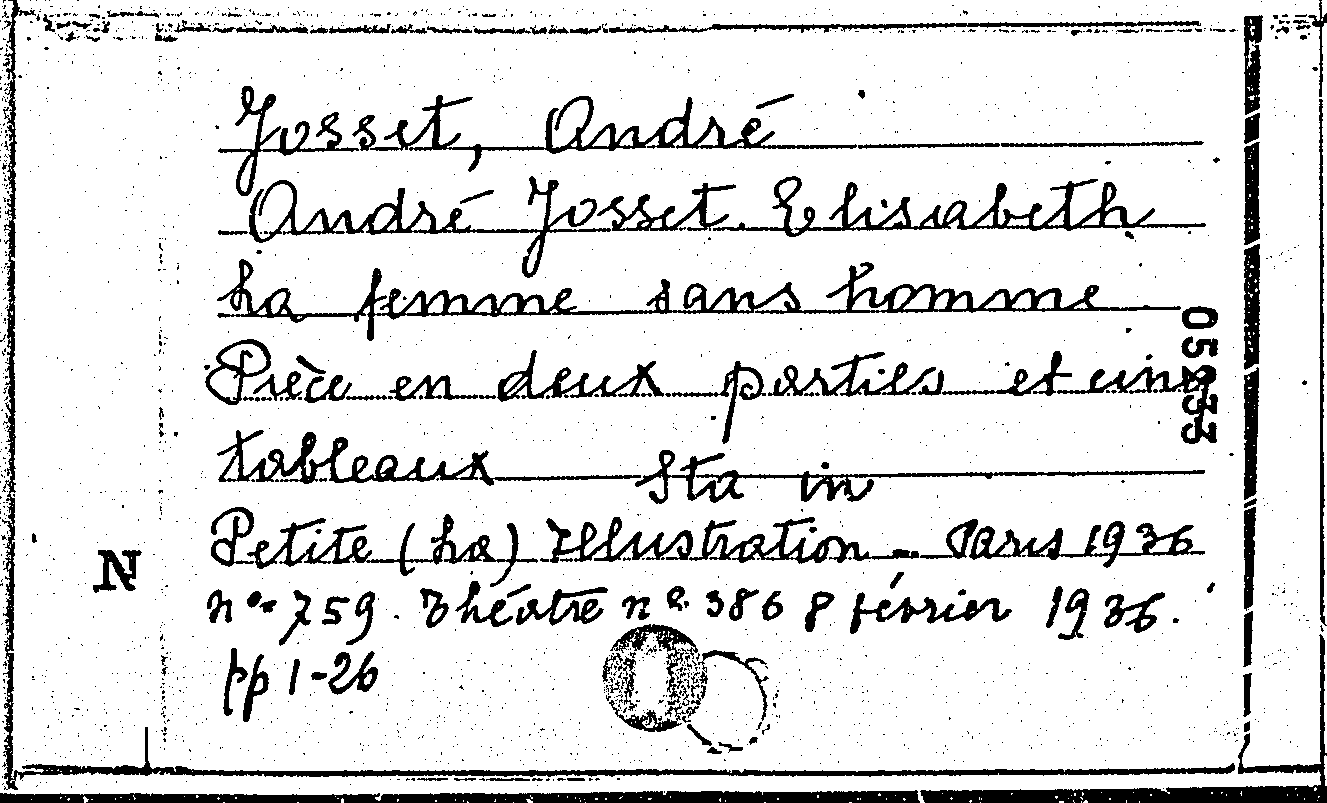 Josset, André
André Josset. Elisabeth
La femme sans homme
Pièce en deux parties et cinq
tableaux Sta in
Petite (La) Illustration - Paris 1936
n° 759. Théâtre n° 386 8 février 1936.
pp 1-26
N